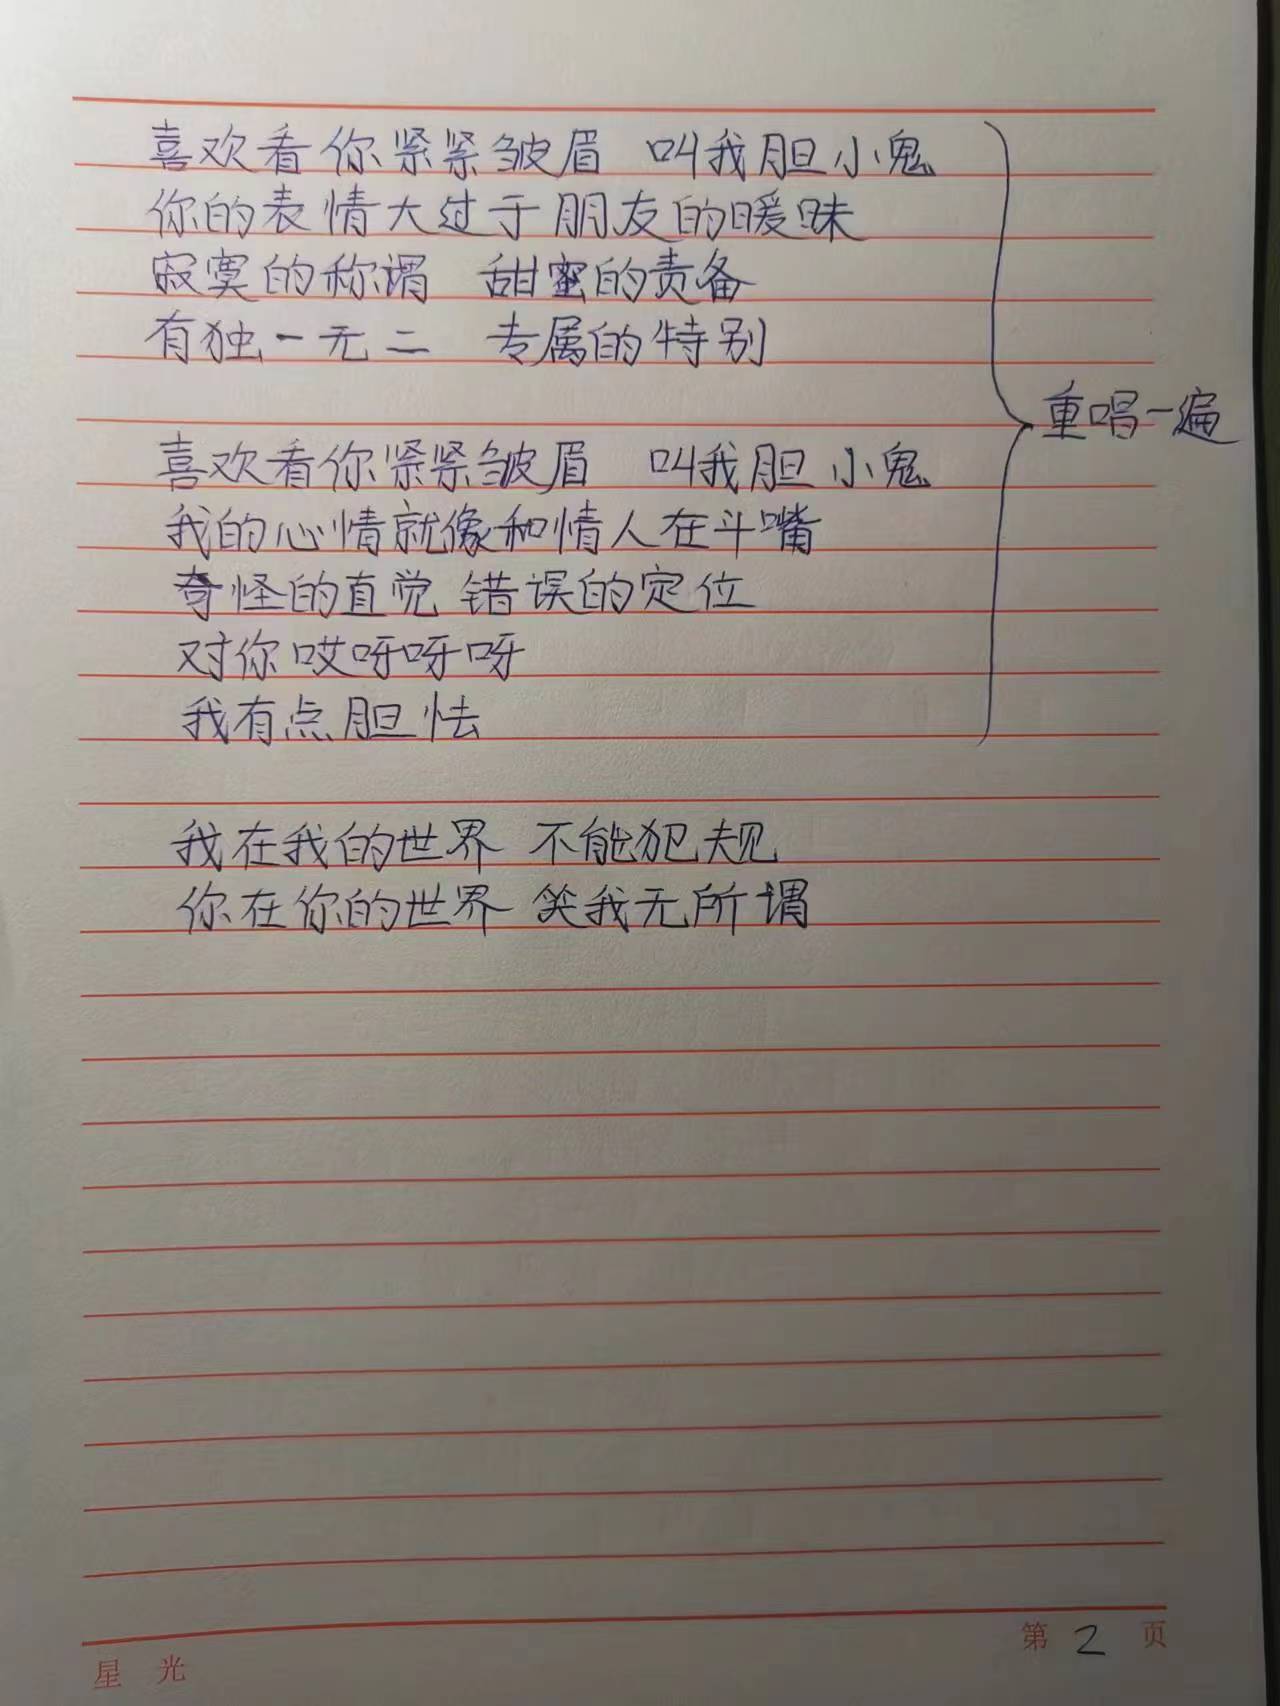 喜欢看你紧紧皱眉 叫我胆小鬼
你的表情大过于朋友的暧昧
寂寞的称谓 甜蜜的责备
有独一无二 专属的特别
重唱一遍
喜欢看你紧紧皱眉 叫我胆小鬼
我的心情就像和情人在斗嘴
奇怪的直觉 错误的定位
对你哎呀呀呀
我有点胆怯
我在我的世界 不能犯规
你在你的世界 笑我无所谓
星光 第2页